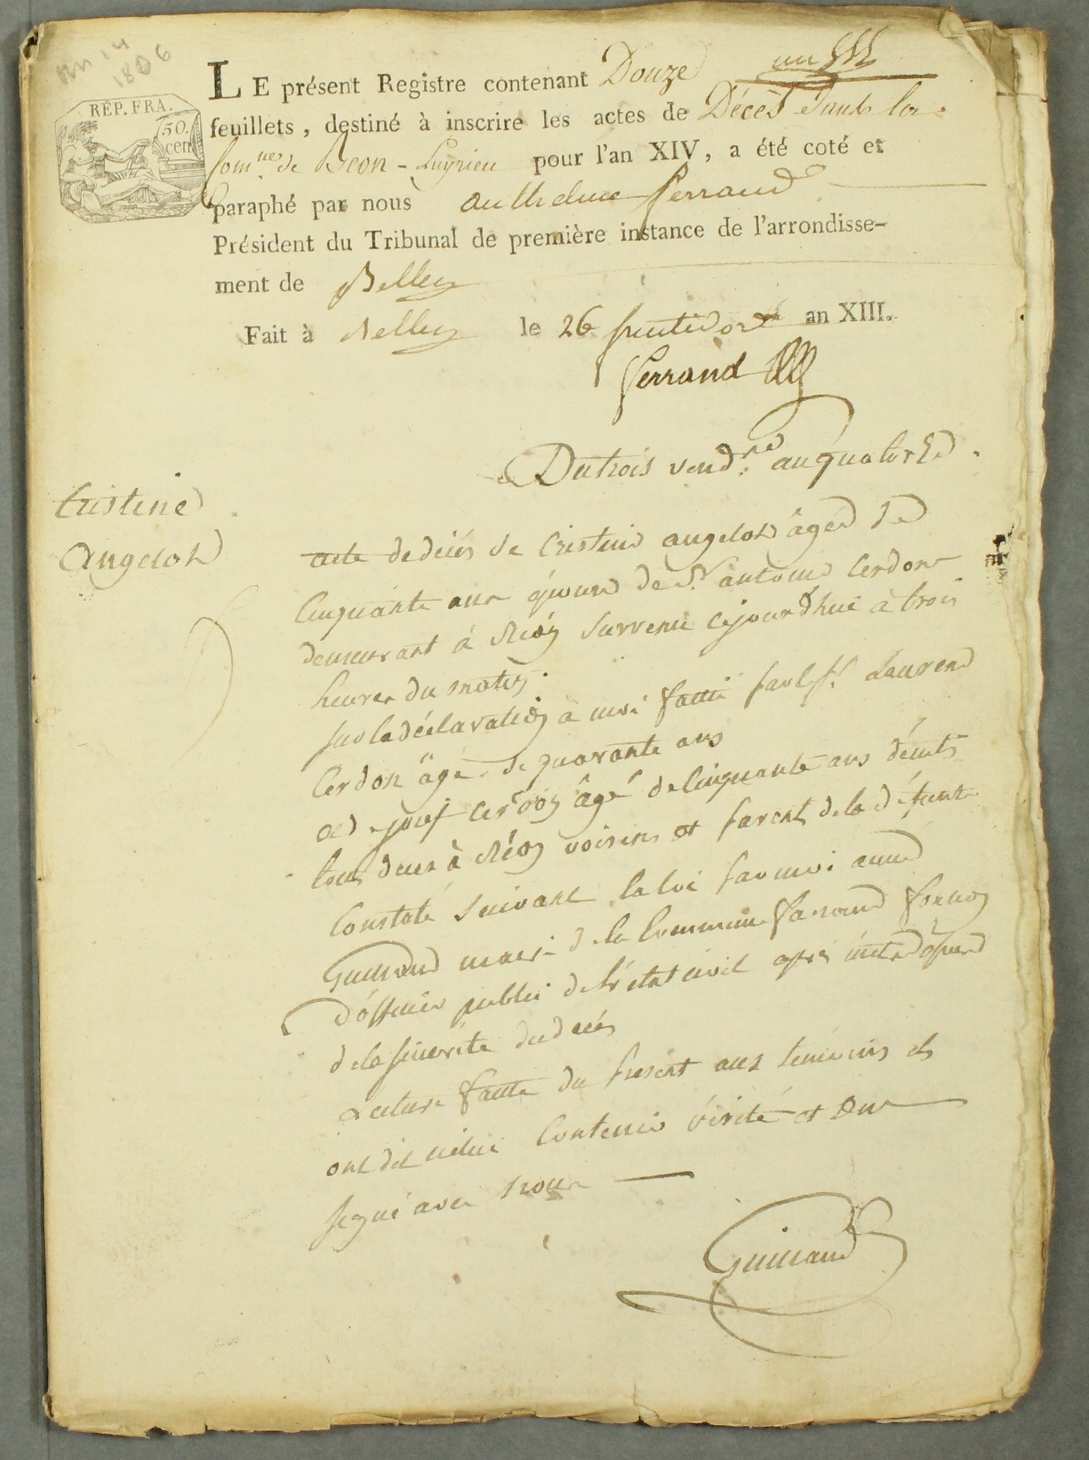 an 14
1806
RÉP. FRA.
50.
cen
LE présent Registre contenant Douze
feuillets, destiné à inscrire les actes de Décès dans la
Comm.ne de Béon-Luyrieu pour l'an XIV, a été coté et
paraphé par nous Anthelme Ferrand
Président du Tribunal de première instance de l'arrondisse-
ment de Belley
Fait à Belley le 26 fructidor an XIII.
Ferrand
Du trois vend.re an quatorze.
Cristine
Angelot
acte de décès de Cristine angelot âgée de
Cinquante ans épouse de Sr antoine Cerdon
demeurant à Béon survenu cejourd'hui à trois
heures du matin
sur la déclaration à moi faitte par Laurend
Cerdon âgé de quarante ans
et de josef Cerdon âgé de Cinquante ans
tous deux à Béon voisins et parent de la défunte
Constaté suivant la loi par moi
Guinand maire de la Commune faisand fonction
d'officier public de l'état civil après
de la sincérité du décès
Lecture faitte du present aux temoins ils
ont dit Contenir vérité et ont
signé avec nous
Guinand